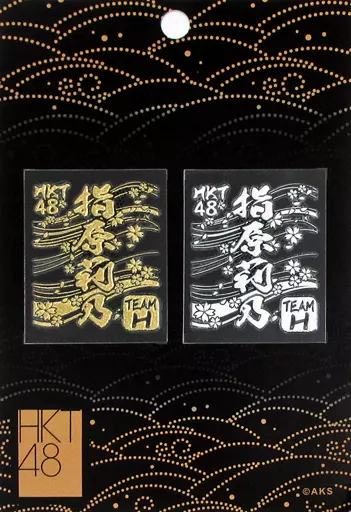 HKT
48
指原莉乃
TEAM
H
HKT
48
指原莉乃
TEAM
H
HKT
48
©AKS